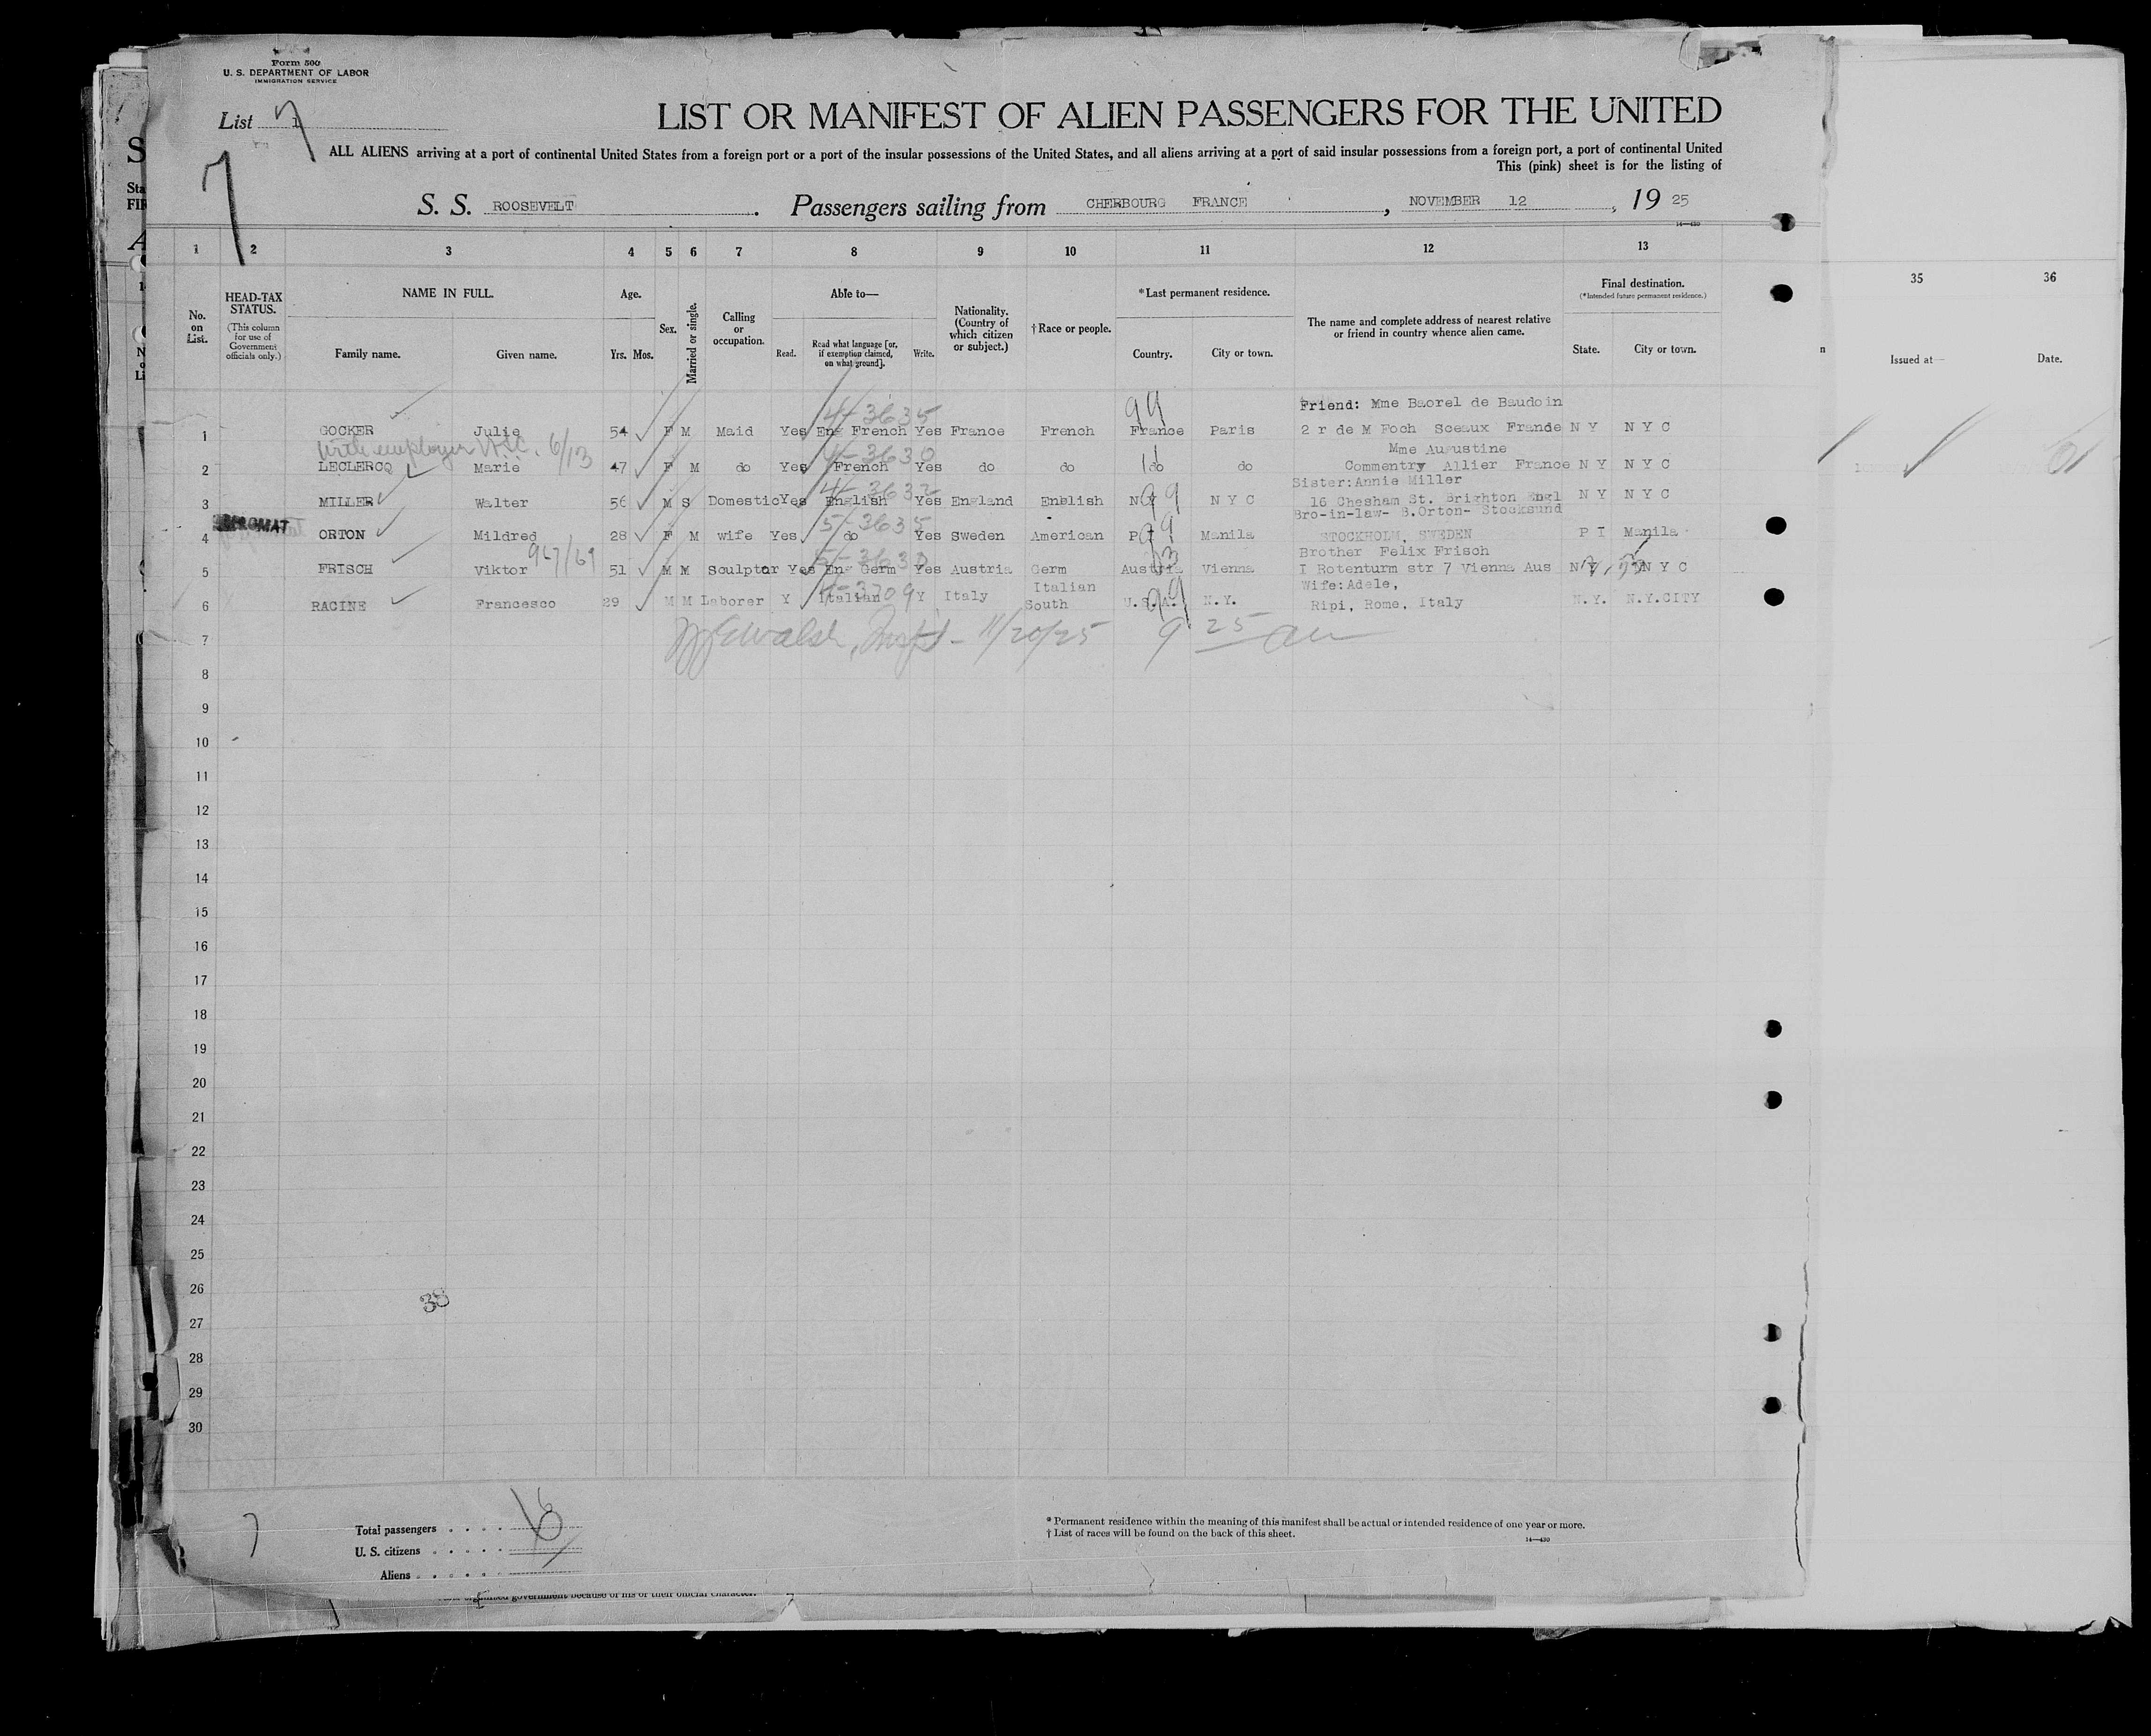 Form 500
U. S. DEPARTMENT OF LABOR
IMMIGRATION SERVICE
List 7
LIST OR MANIFEST OF ALIEN PASSENGERS FOR THE UNITED
ALL ALIENS arriving at a port of continental United States from a foreign port or a port of the insular possessions of the United States, and all aliens arriving at a port of said insular possessions from a foreign port, a port of continental United
This (pink) sheet is for the listing of
7
S. S. ROOSEVELT. Passengers sailing from CHERBOURG FRANCE, NOVEMBER 12, 19 25
14—430
1 2 3 4 5 6 7 8 9 10 11 12 13
35 36
No. on List.
HEAD-TAX STATUS.
(This column for use of Government officials only.)
NAME IN FULL.
Family name. Given name.
Age.
Yrs. Mos.
Sex.
Married or single.
Calling or occupation.
Able to—
Read. Read what language [or, if exemption claimed, on what ground]. Write.
Nationality. (Country of which citizen or subject.)
† Race or people.
*Last permanent residence.
Country. City or town.
The name and complete address of nearest relative or friend in country whence alien came.
Final destination.
(*Intended future permanent residence.)
State. City or town.
Issued at— Date.
4-3635 99 Friend: Mme Baorel de Baudoin
1 GOCKER Julie 54 F M Maid Yes Eng French Yes France French France Paris 2 r de M Foch Sceaux Frande N Y N Y C
with employer 6/13 4-3630 Mme Augustine
2 LECLERCQ Marie 47 F M do Yes French Yes do do do do Commentry Allier France N Y N Y C
4-3632 99 Sister:Annie Miller
3 MILLER Walter 56 M S Domestic Yes English Yes England Enblish N Y N Y C 16 Chesham St. Brighton Engl N Y N Y C
DIPLOMAT 5-3635 99 Bro-in-law- B.Orton- Stocksund
4 ORTON Mildred 28 F M wife Yes do Yes Sweden American P I Manila STOCKHOLM, SWEDEN P I Manila
967/69 5-3633 33 Brother Felix Frisch
5 FRISCH Viktor 51 M M Sculptor Yes Eng Germ Yes Austria Germ Austria Vienna I Rotenturm str 7 Vienna Aus N Y N Y C
3709 99 Italian Wife:Adele,
6 RACINE Francesco 29 M M Laborer Y Italian Y Italy South U.S.A. N.Y. Ripi, Rome, Italy N.Y. N.Y.CITY
7 Walsh, Inspt- 11/20/25 9 25 am
8
9
10
11
12
13
14
15
16
17
18
19
20
21
22
23
24
25
26
38
27
28
29
30
7
Total passengers 6
U. S. citizens
Aliens
* Permanent residence within the meaning of this manifest shall be actual or intended residence of one year or more.
† List of races will be found on the back of this sheet.
14—430
government because of his or their official character.